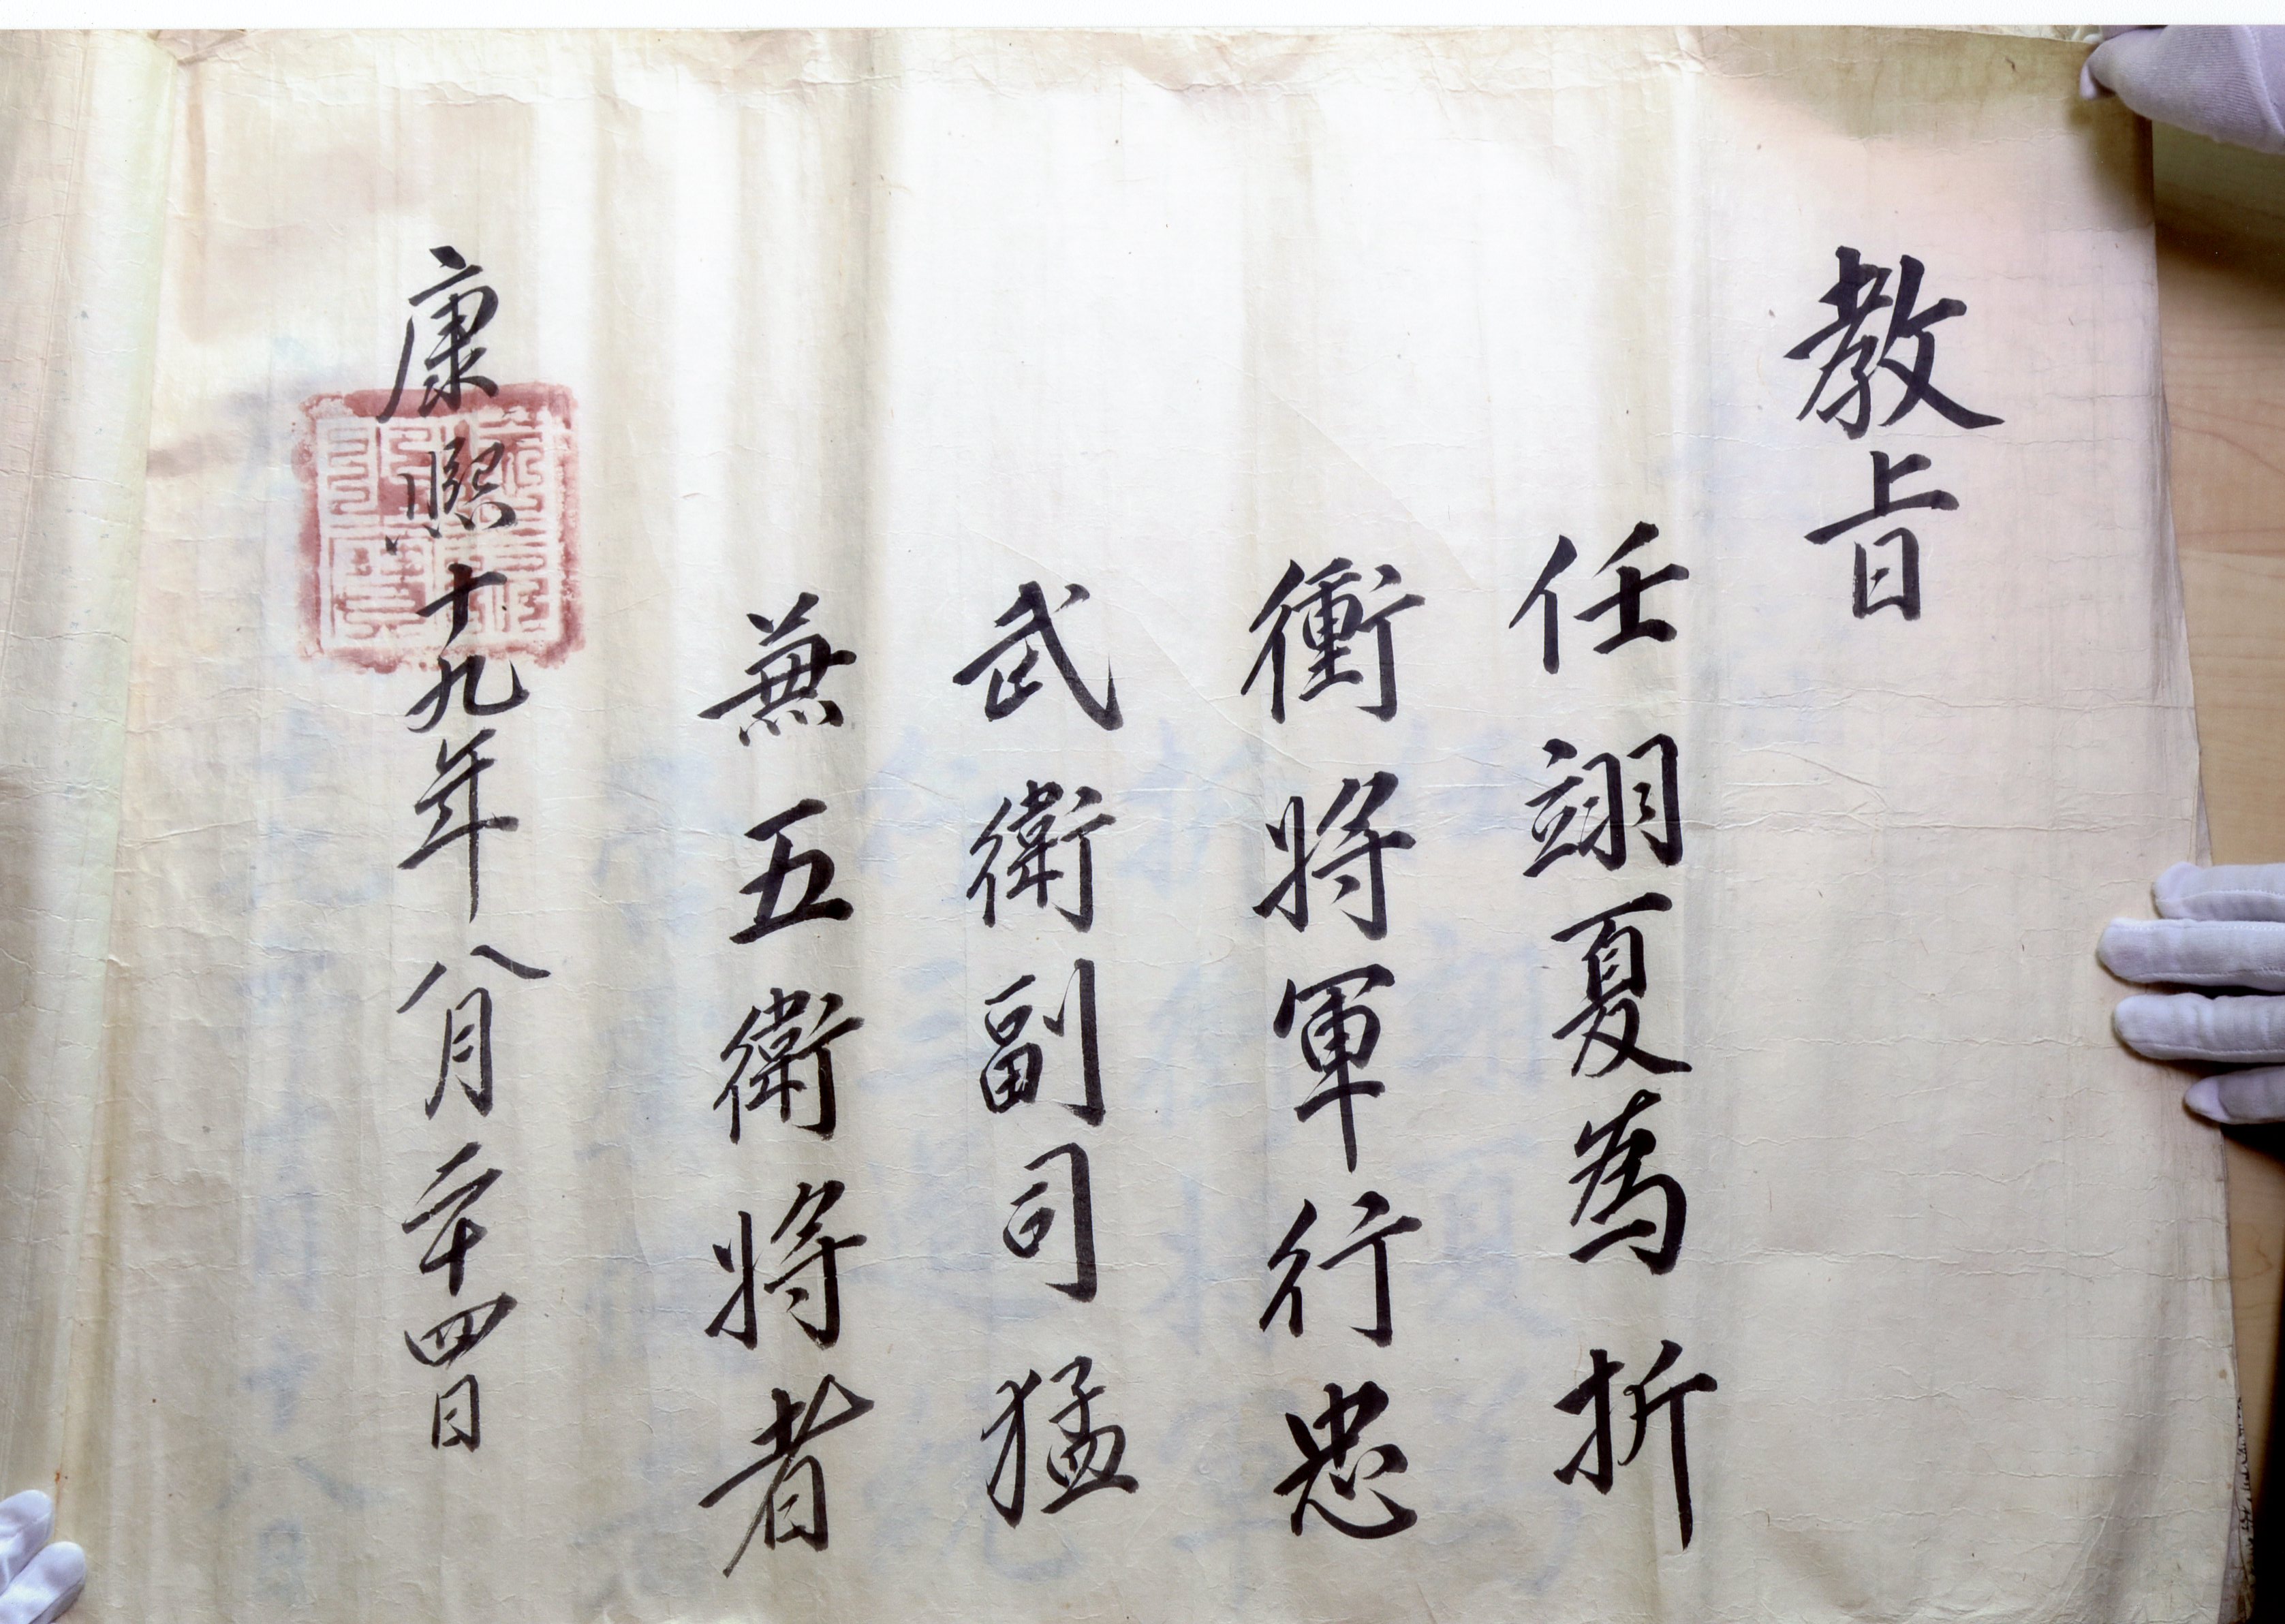 教旨
任翊夏為折
衝將軍行忠
武衛副司猛
兼五衛將者
康熙十九年八月二十四日